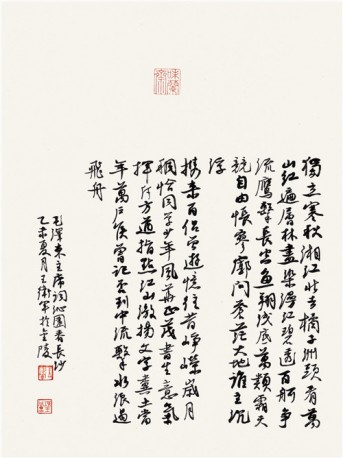 獨立寒秋湘江北去橘子洲頭看萬
山紅遍層林盡染漫江碧透百舸爭
流鷹擊長空魚翔淺底萬類霜天
競自由悵寥廓問蒼茫大地誰主沉
浮
携來百侶曾遊憶往昔崢嶸歲月
稠恰同學少年風華正茂書生意氣
揮斥方遒指點江山激揚文字糞土當
年萬戶侯曾記否到中流擊水浪遏
飛舟
毛澤東主席詞沁園春長沙
乙未夏月王衛軍於金陵